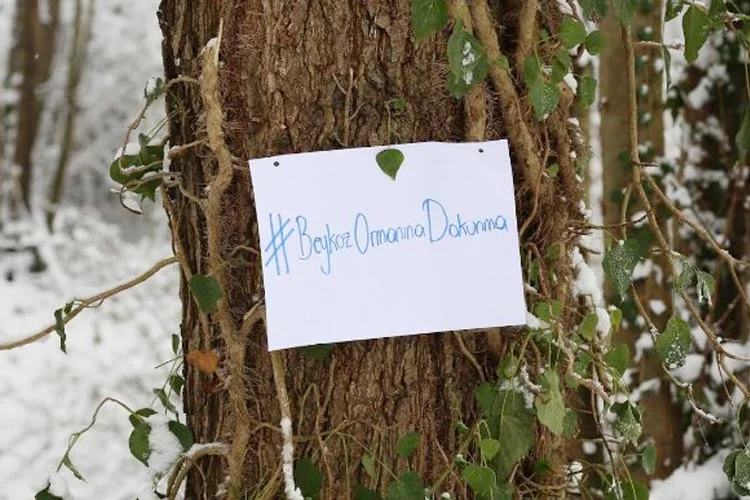 #BeykozOrmanınaDokunma